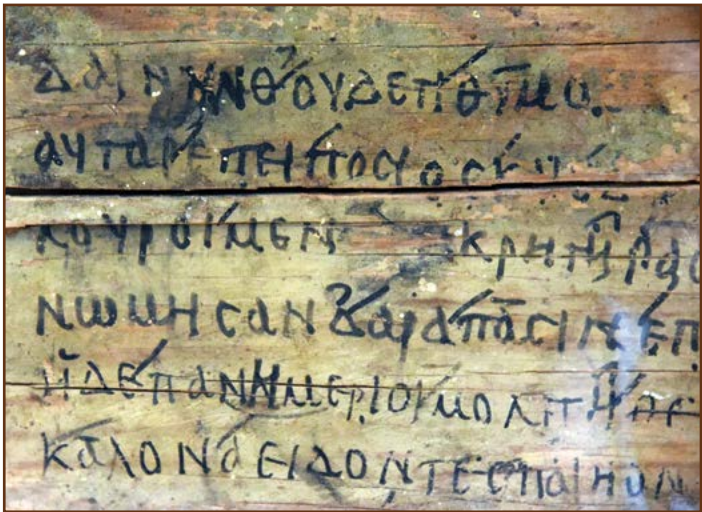 ΔΑΙΝΥΝΘΟΥΔΕΠΘΥΜΟ
ΑΥΤΑΡΕΠΕΙΠΟϹΙΟϹΚ
ΚΟΥΡΟΙΜΕΝ ΚΡΗΤΗΡΑϹ
ΝΩΜΗϹΑΝΔΑΡΑΠΑϹΙΝΕΠ
ΗΔΕΠΑΝΗΜΕΡΙΟΙΜΟΛΠΗΘΕ
ΚΑΛΟΝΑΕΙΔΟΝΤΕϹΠΑΙΗΟΝ